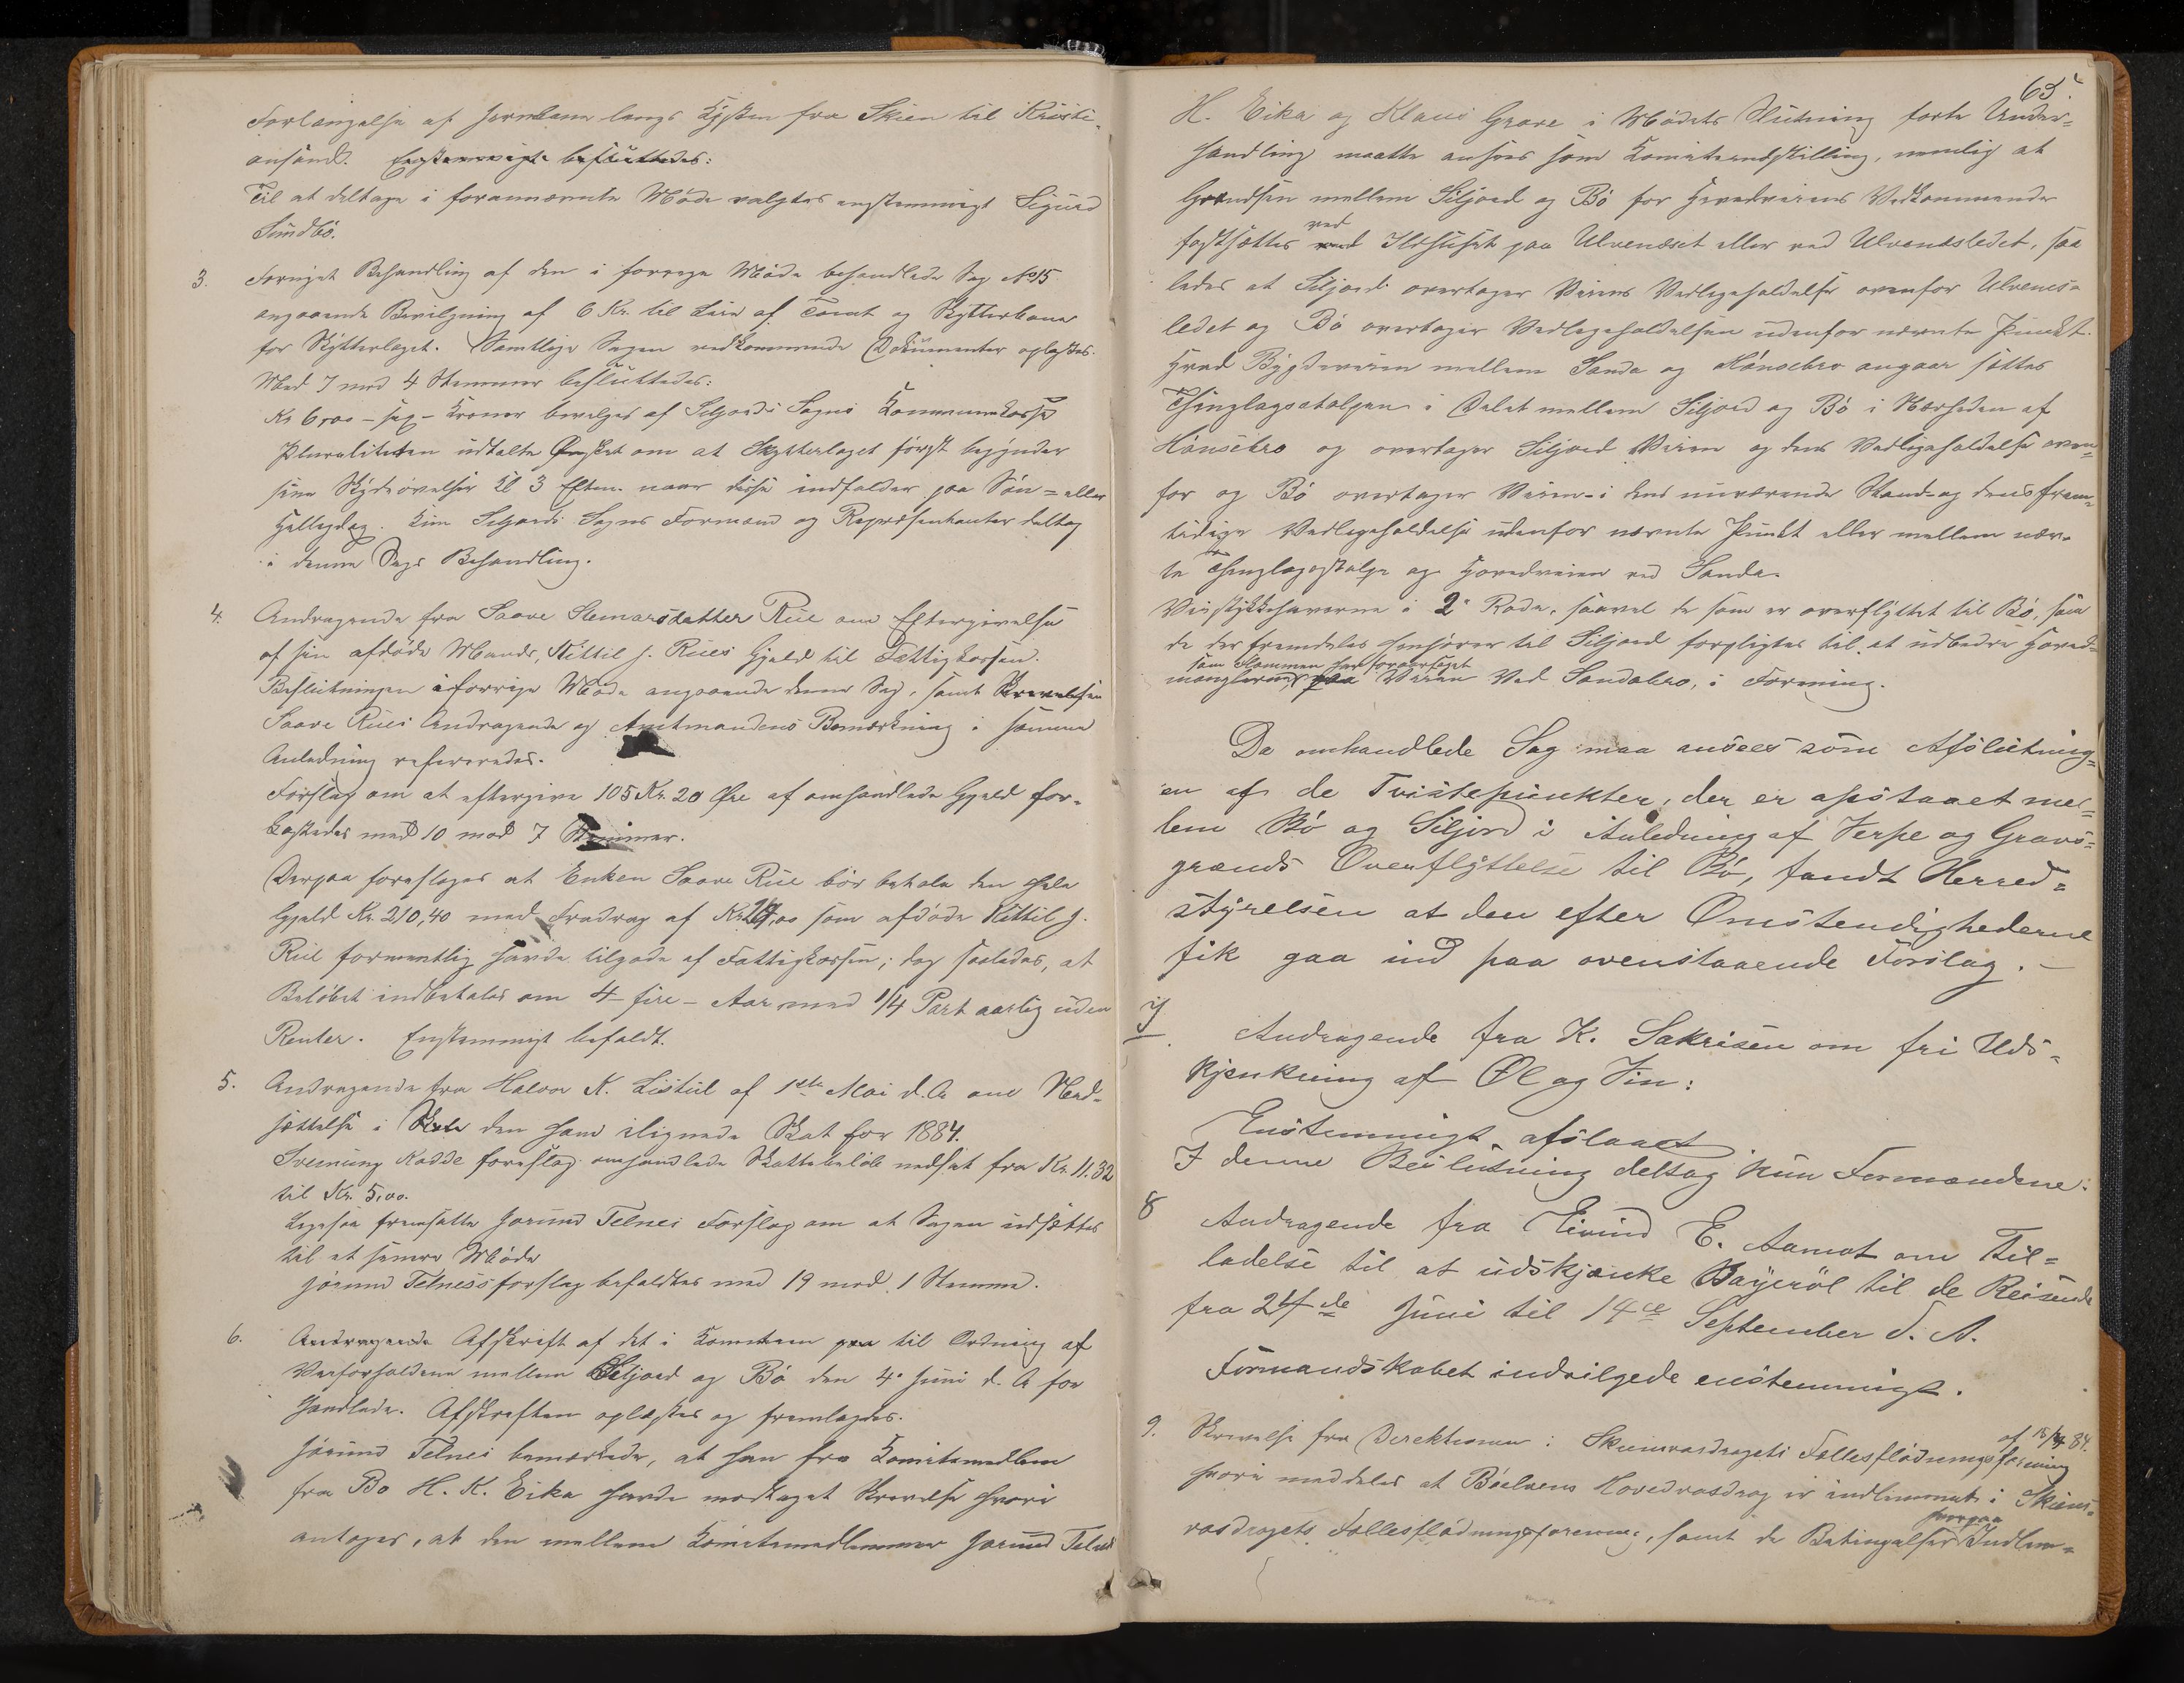 Forlængelse af Jernbane langs Kysten fra Skien til Kristi-
ansand. Enstemmigt besluttedes:
Til at deltage i forannævnte Møde valgtes enstemmigt Sigurd
Sundbö.
3. Fornyet Behandling af den i forrige Möde behandlede Sag No 15
angaaende Bevilgning af 6 Kr. til Leie af Tomt og Skytterbane
for Skytterlaget. Samtlige Sagen vedkommende Dokumenter oplæstes.
Med 7 mod 4 Stemmer besluttedes:
Kr 6,00 - sex - Kroner bevilges af Seljords Sogns Kommunekasse
Pluraliteten udtalte Ønsket om at Skytterlaget först begynder
sine Skydeövelser Kl 3 Efterm. naar disse indfalder paa Sön= eller
Helligdag. Kun Seljords Sogns Formænd og Repræsentanter deltog
i denne Sags Behandling.
4. Andragende fra Saave Steinarsdatter Rue om Eftergivelse
af sin afdöde Mands, Kittil J. Rues Gjæld til Fattigkassen.
Beslutningen i forrige Möde angaaende denne Sag, samt Skrivelsen
Saave Rues Andragende og Amtmandens Bemærkning i samme
Anledning refereredes.
Forslag om at eftergive 105 Kr. 20 Øre af omhandlede Gjæld for-
kastedes med 10 mod 7 Stemmer.
Derpaa foresloges at Enken Saave Rue bör betale den hele
Gjæld Kr. 210,40 med Fradrag af Kr. ,00 som afdöde Kittil J.
Rue formentlig havde tilgode af Fattigkassen; dog saaledes, at
Belöbet indbetales om 4 - fire - Aar med 1/4 Part aarlig uden
Renter. Enstemmigt befaldt.
5. Andragende fra Halvor K. Listul af 1ste Mai d. A om Ned-
sættelse i den ham ilignede Skat for 1884.
Sveinung Kodde foreslog omhandlede Skattebelöb nedsat fra Kr. 11.32
til Kr. 5,00.
Ligesaa fremsatte Jorund Telnes Forslag om at Sagen udsættes
til et senere Möde
Jörund Telness forslag befaldtes med 19 mod 1 Stemme.
6. Andragende Afskrift af det i Komiteen paa til Ordning af
Veiforholdene mellem Seljord og Bö den 4de Juni d. A for
handlede. Afskriften oplæstes og fremlagdes.
Jörund Telnes bemærkede, at han fra Komitemedlem
fra Bö H. K. Eika havde modtaget Skrivelse hvori
antages, at den mellem Komitemedlemmer Jorund Telnes
65.
H. Eika og Klaus Grave i Mödets Slutning förte Under-
handling maatte ansees som Komiteindstilling, nemlig at
Grændsen mellem Siljord og Bö for Hovedveiens Vedkommende
fastsættes ved
ved Ildhuset paa Ulvenæset eller ved Ulvenæsledet, saa
ledes at Siljord overtager Veiens Vedligeholdelse ovenfor Ulvenæs-
ledet og Bö overtager Vedligeholdelsen udenfor nævnte Punkt.
Hvad Bygdeveien mellem Sanda og Hönsebro angaar sættes
Thinglagsstolpen i Delet mellem Siljord og Bö i Nærheden af
Hönsebro og overtager Siljord Veien og dens Vedligeholdelse oven-
for og Bö overtager Veien - i dens nuværende Stand - og dens frem-
tidige Vedligeholdelse udenfor nævnte Punkt eller mellem nævn-
te Thinglagsstolpe og Hovedveien ved Sanda.
Veistykkehaverne i 2de Rode, saavel de som er overflyttet til Bö, som
de der fremdeles henhörer til Siljord forpligtes til at udbedre Hoved-
som Flommen har foraarsaget
manglerne paa Veien ved Sandabro, i Forening.
Da omhandlede Sag maa ansees som Afslutning-
en af de Tvistepunkter, der er opstaaet mel-
lem Bö og Siljord i Anledning af Verpe og Gravs-
grænds Overflyttelse til Bö, fandt Herred=
styrelsen at den efter Omstendighederne
fik gaa ind paa ovenstaaende Forslag. -
7. Andragende fra K. Sakrisen om fri Uds-
kjenkning af Øl og Vin:
Enstemmigt afslaaet
I denne Beslutning deltog kun Formændene.
8 Andragende fra Eivind E. Aamot om Til=
ladelse til at udskjænke Bayeröl til de Reisende
fra 24de Juni til 14de September d. A.
Formandskabet indvilgede enstemmigt.
9. Skrivelse fra Direktionen i Skiensvasdragets Fællesflödningsforening
af 15/ 84.
hvori meddeles at Böelvens Hovedvasdrag er indlemmet i Skiens-
vasdragets Fællesflödningsforening, samt de Betingelser hvorpaa Indlem=